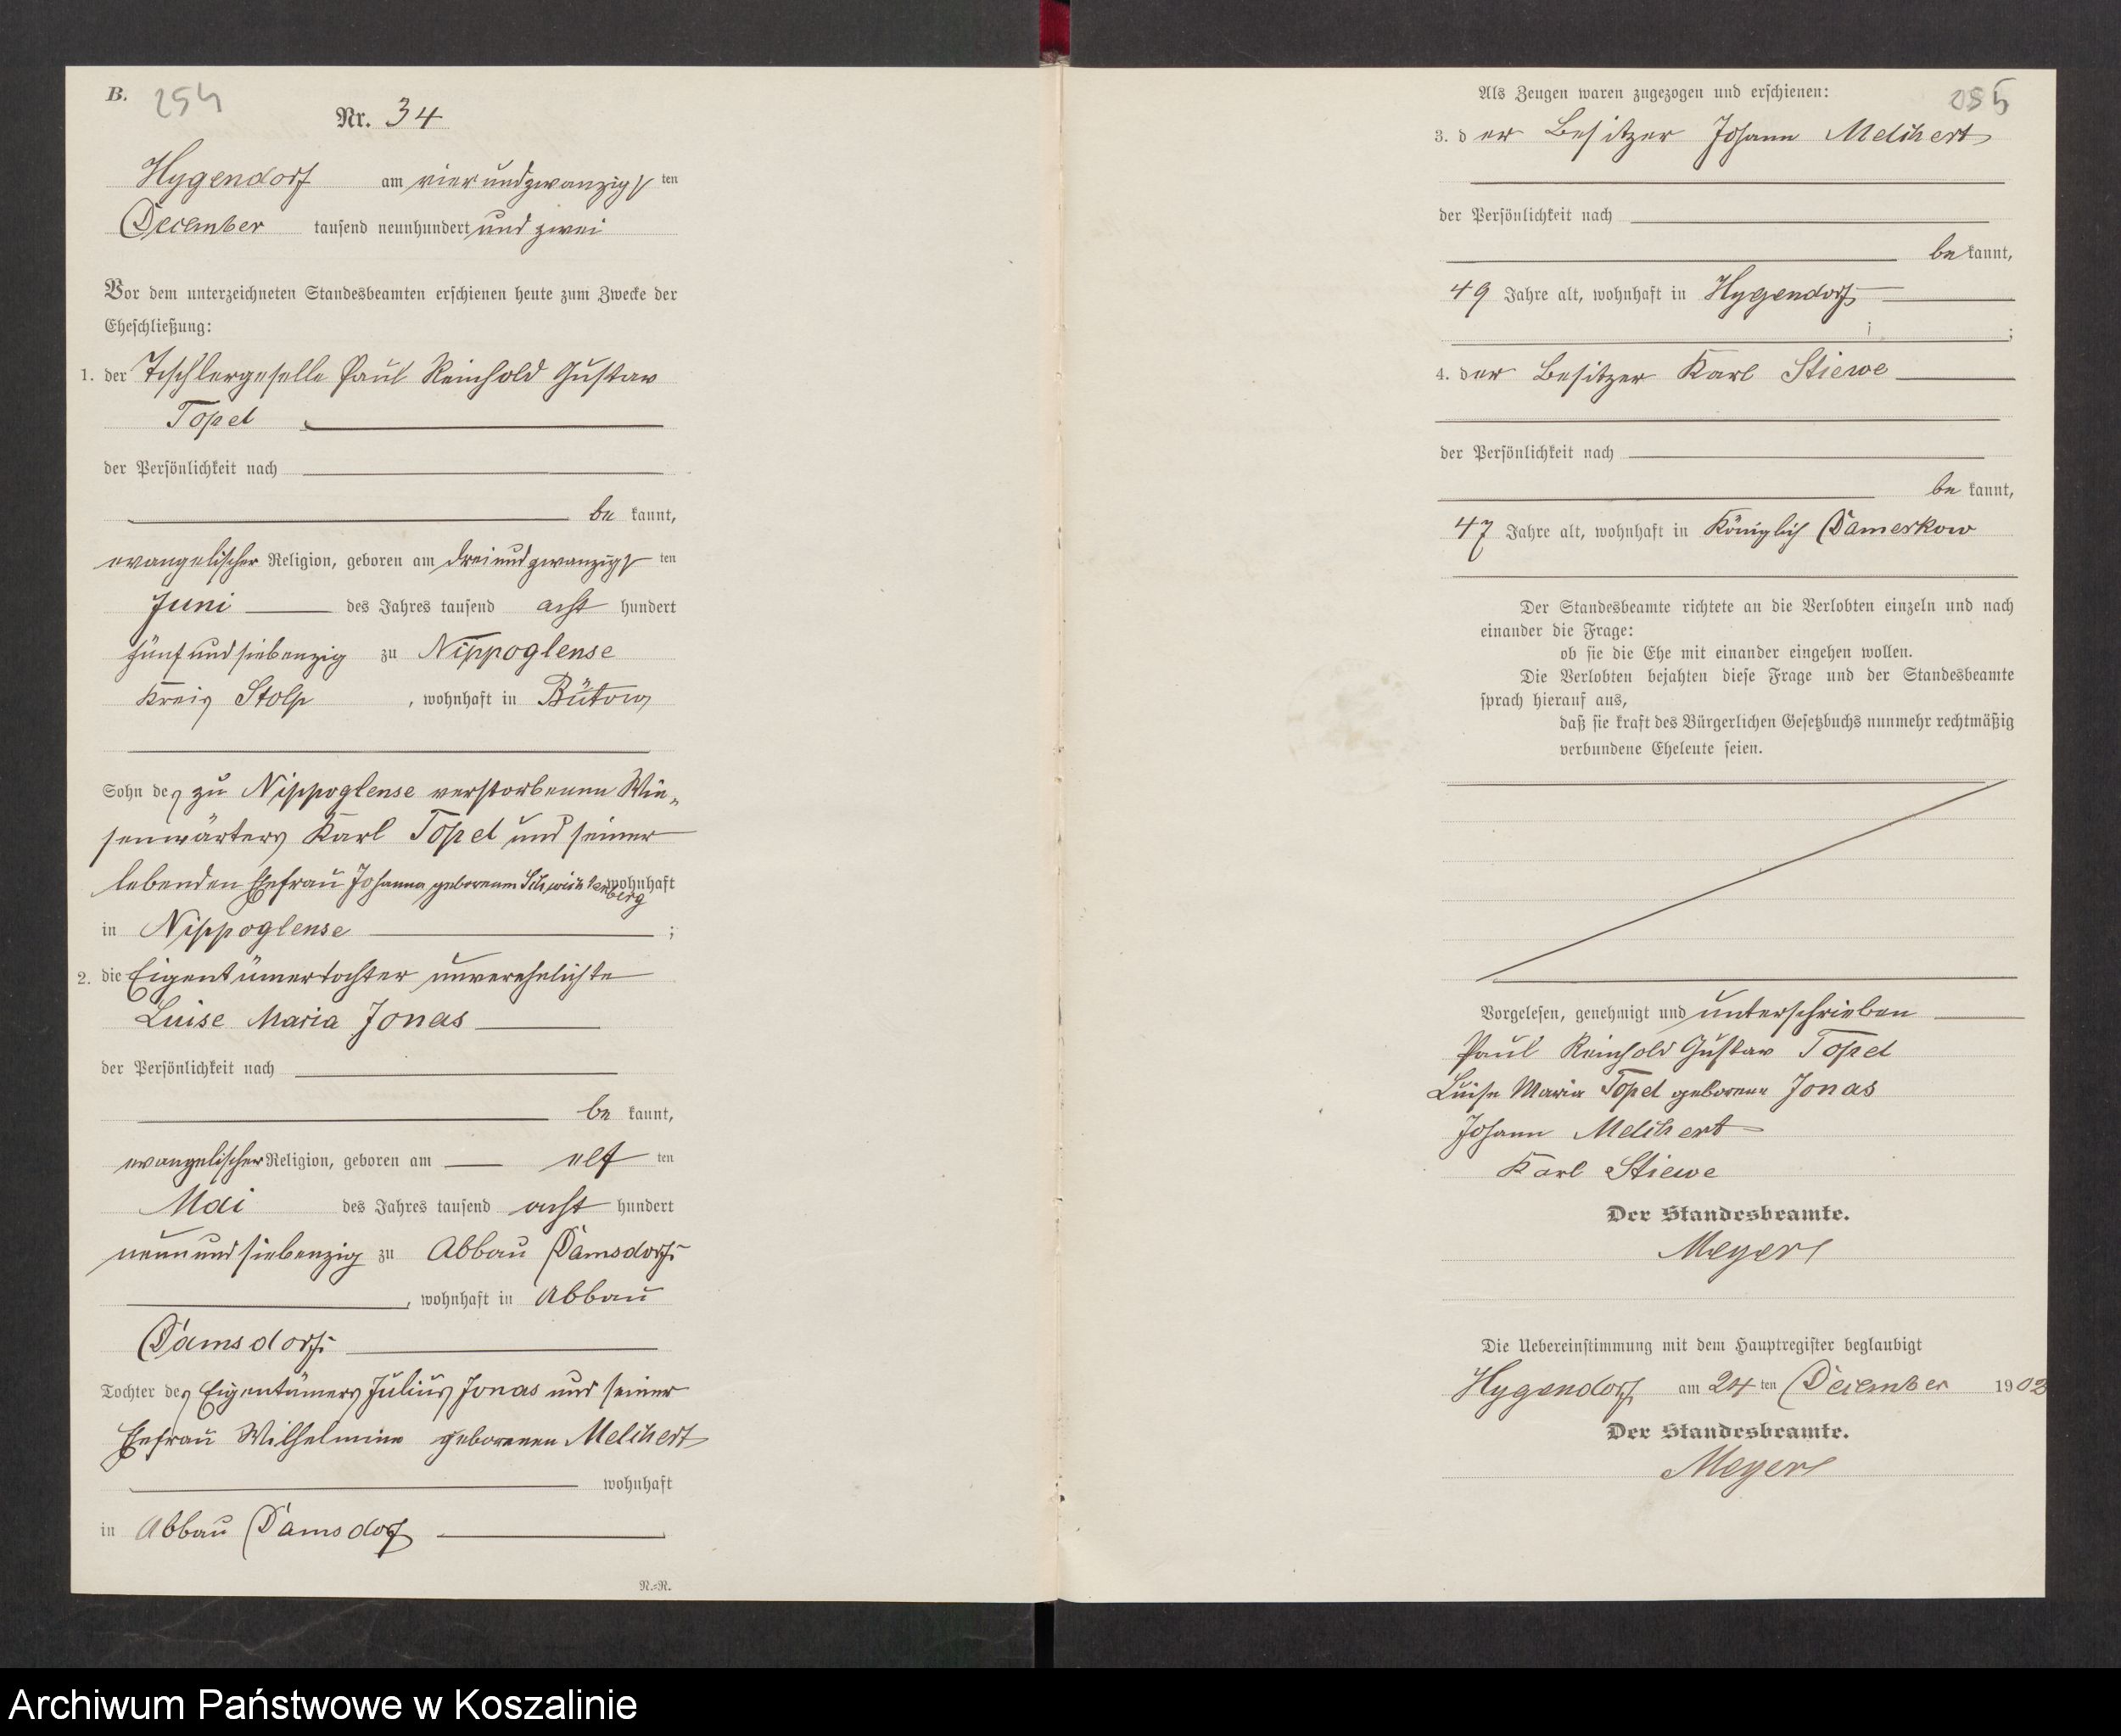 B.
254
Nr. 34
Hygendorf am vierundzwanzigsten
December tausend neunhundert und zwei
Vor dem unterzeichneten Standesbeamten erschienen heute zum Zwecke der
Eheschließung:
1. der Tischlergeselle Paul Reinhold Gustav
Topel
der Persönlichkeit nach
be kannt,
evangelischer Religion, geboren am dreiundzwanzigsten
Juni des Jahres tausend acht hundert
fünf und siebenzig zu Nippoglense
Kreis Stolp, wohnhaft in Bütow
Sohn des zu Nippoglense verstorbenen Wie-
senwärters Karl Topel und seiner
lebenden Ehefrau Johanna geborenen Schwichtenberg wohnhaft
in Nippoglense ;
2. die Eigentümertochter unverehelichte
Luise Maria Jonas
der Persönlichkeit nach
be kannt,
evangelischer Religion, geboren am elf ten
Mai des Jahres tausend acht hundert
neun und siebenzig zu Abbau Damsdorf
, wohnhaft in Abbau
Damsdorf
Tochter des Eigentümers Julius Jonas und seiner
Ehefrau Wilhelmine geborenen Melchert
wohnhaft
in Abbau Damsdorf
N.=N.
255
Als Zeugen waren zugezogen und erschienen:
3. der Besitzer Johann Melchert
der Persönlichkeit nach
be kannt,
49 Jahre alt, wohnhaft in Hygendorf
;
4. der Besitzer Karl Stiewe
der Persönlichkeit nach
be kannt,
47 Jahre alt, wohnhaft in Königlich Damerkow
Der Standesbeamte richtete an die Verlobten einzeln und nach
einander die Frage:
ob sie die Ehe mit einander eingehen wollen.
Die Verlobten bejahten diese Frage und der Standesbeamte
sprach hierauf aus,
daß sie kraft des Bürgerlichen Gesetzbuchs nunmehr rechtmäßig
verbundene Eheleute seien.
Vorgelesen, genehmigt und unterschrieben
Paul Reinhold Gustav Topel
Luise Maria Topel geborene Jonas
Johann Melchert
Karl Stiewe
Der Standesbeamte.
Meyer
Die Uebereinstimmung mit dem Hauptregister beglaubigt
Hygendorf am 24 ten December 1902
Der Standesbeamte.
Meyer
Archiwum Państwowe w Koszalinie